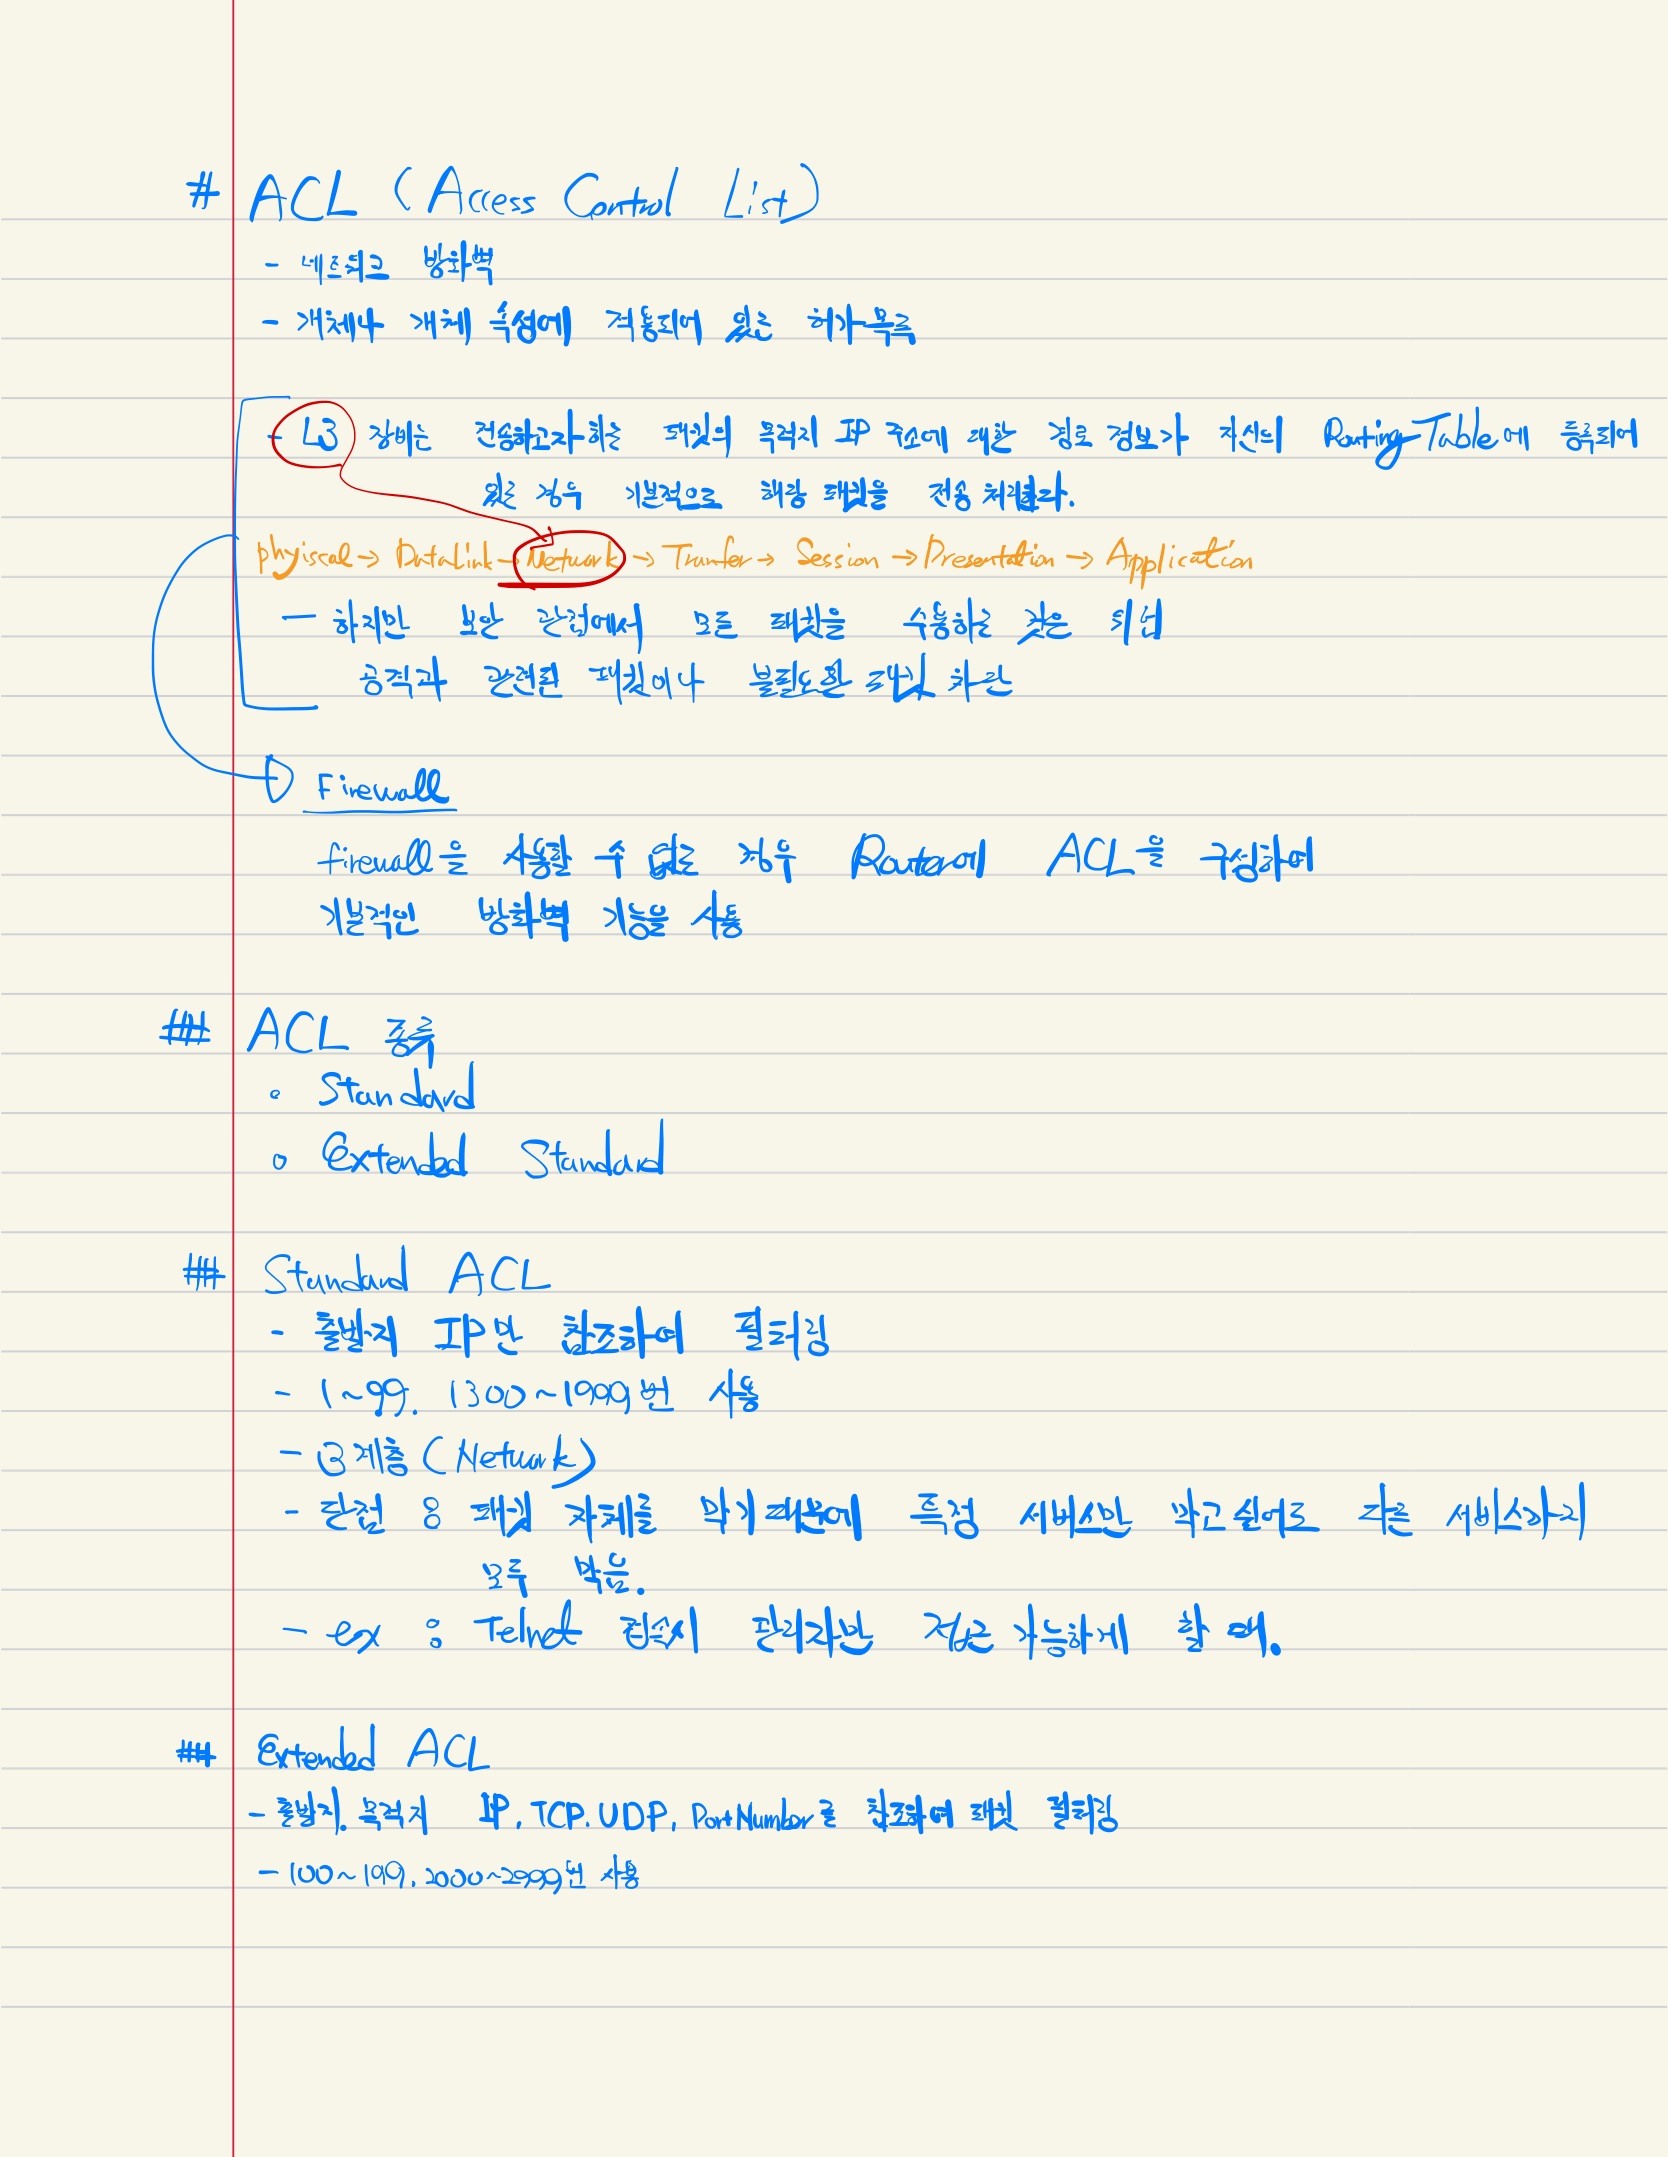 # ACL (Access Control List)
- 네트워크 방화벽
- 개체나 개체 속성에 적용되어 있는 허가 목록
- L3 장비는 전송하고자 하는 패킷의 목적지 IP 주소에 대한 경로 정보가 자신의 Routing-Table에 등록되어
있는 경우 기본적으로 해당 패킷을 전송 처리한다.
phyiscal → DataLink → Network → Tranfer → Session → Presentation → Application
- 하지만 보안 관점에서 모든 패킷을 수용하는 것은 위험
공격과 관련된 패킷이나 불필요한 패킷 차단
Firewall
firewall을 사용할 수 없는 경우 Router에 ACL을 구성하여
기본적인 방화벽 기능을 사용
## ACL 종류
◦ Standard
◦ Extended Standard
## Standard ACL
- 출발지 IP만 참조하여 필터링
- 1~99. 1300~1999번 사용
- 3계층 (Network)
- 단점 : 패킷 자체를 막기때문에 특정 서비스만 막고싶어도 다른 서비스까지
모두 막음.
- ex : Telnet 접속시 관리자만 접근 가능하게 할 때.
## Extended ACL
- 출발지. 목적지 IP, TCP. UDP, PortNumber를 참조하여 패킷 필터링
- 100~199. 2000~2999번 사용